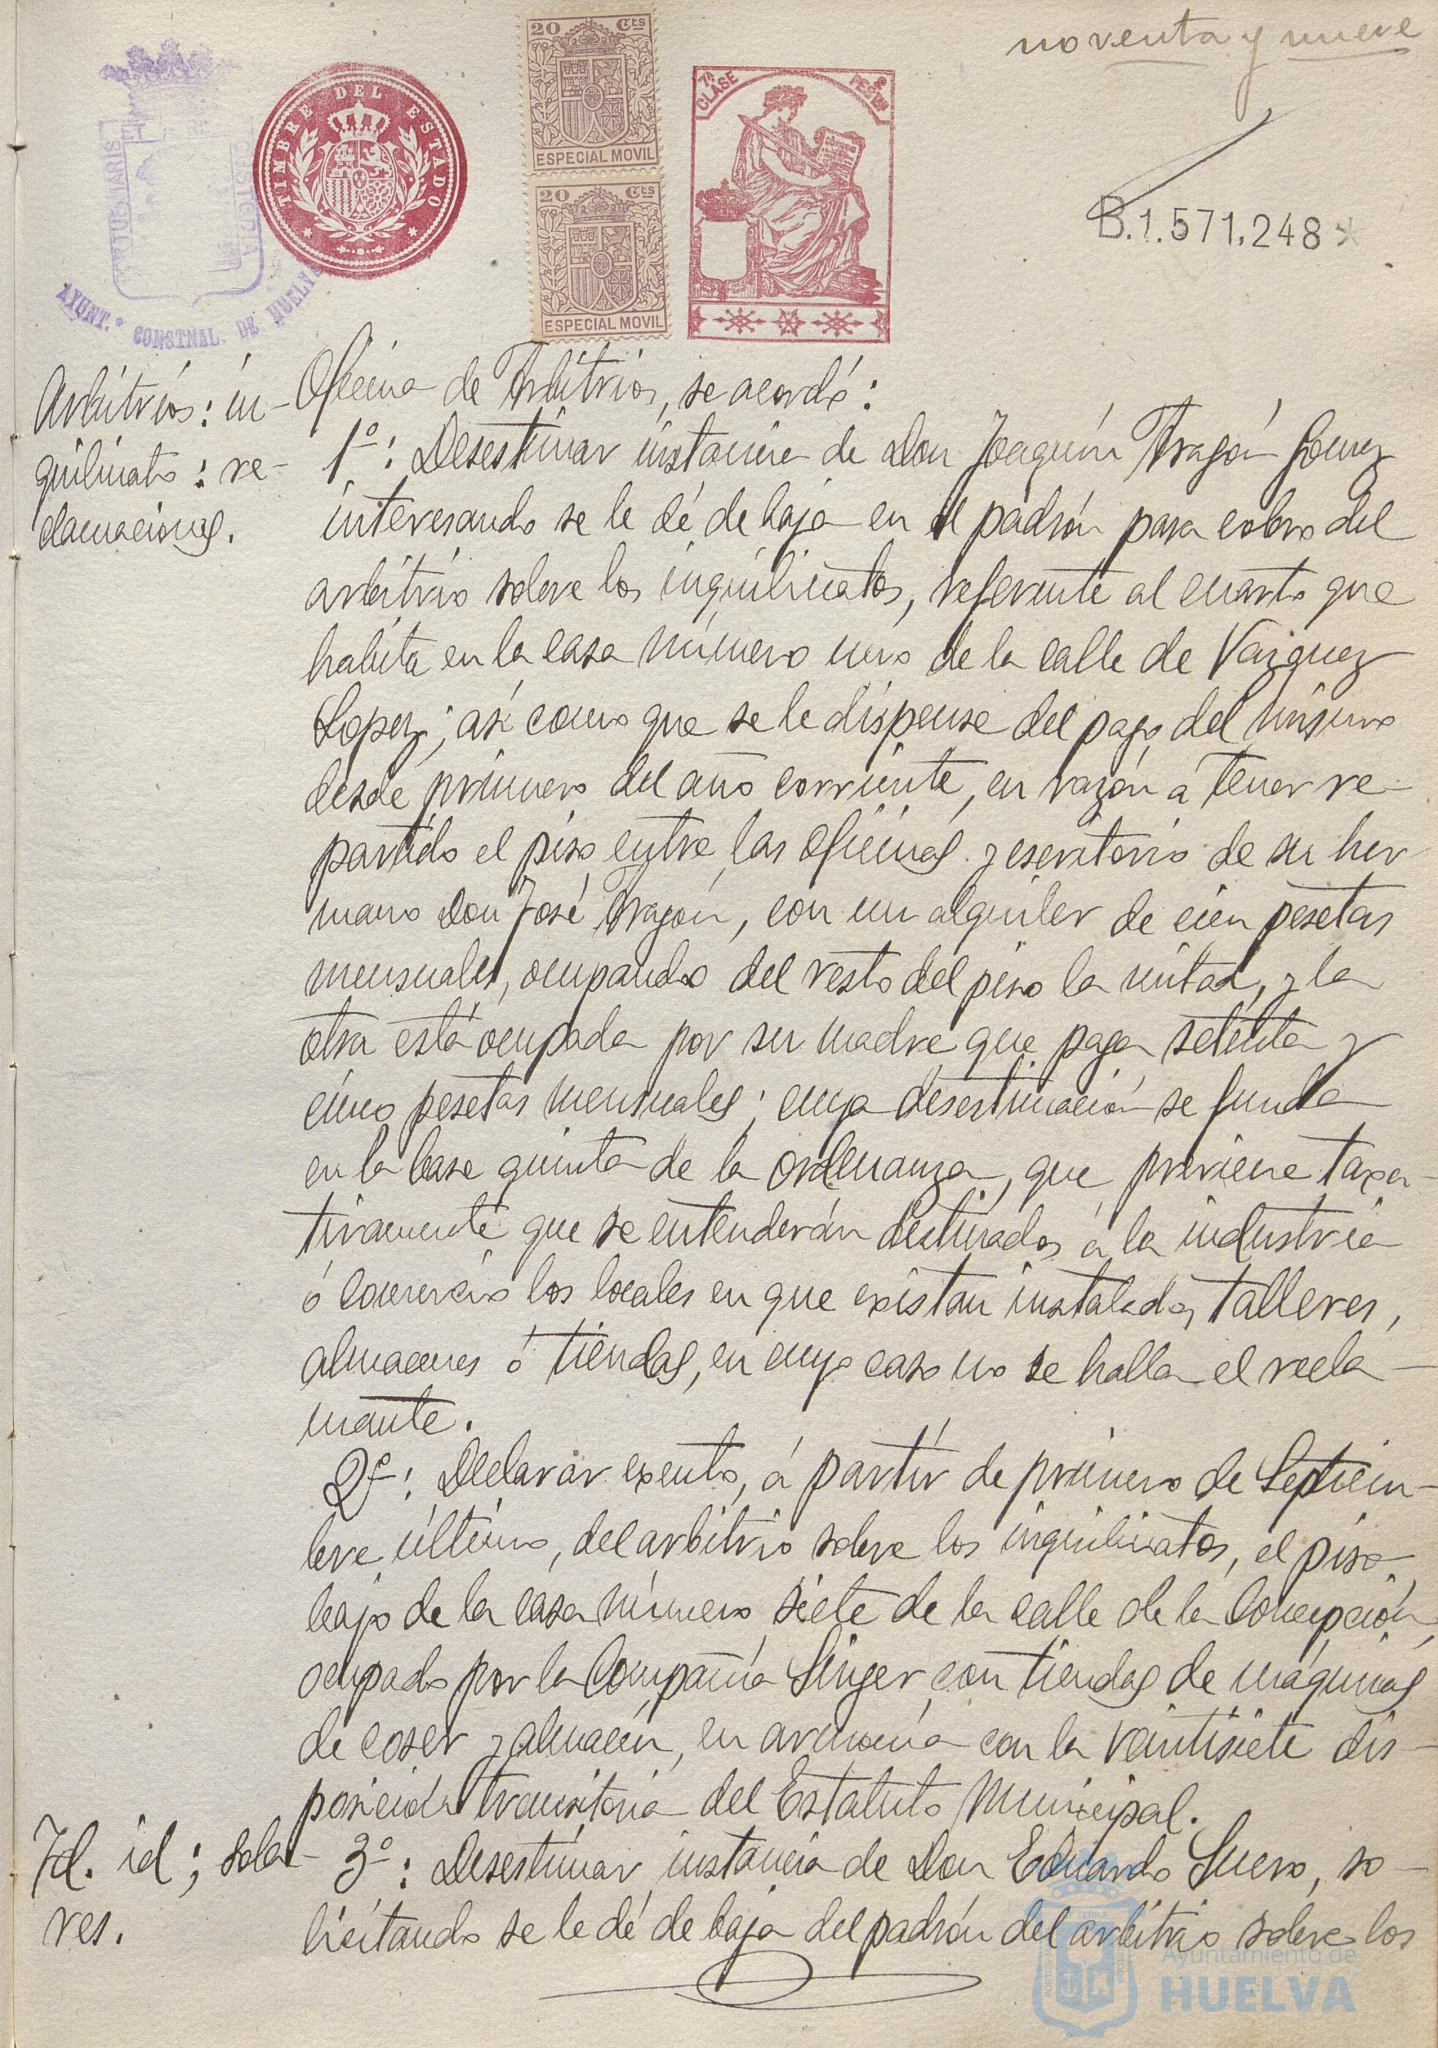 noventa y nueve
TIMBRE DEL ESTADO
20 Cts
ESPECIAL MOVIL
20 Cts
ESPECIAL MOVIL
7ª CLASE
PESTAS
B.1.571,248
AYUNT.º CONSTNAL. DE HUELVA
Arbitrios: in-
quilinato: re-
clamaciones.
Oficina de Arbitrios, se acordó:
1º: Desestimar instancia de Don Joaquín Aragón Gomez
interesando se le dé de baja en el padrón para cobro del
arbitrio sobre los inquilinatos, referente al cuarto que
habita en la casa número uno de la calle de Vazquez
Lopez; así como que se le dispense del pago del mismo
desde primero del año corriente, en razón á tener re-
partido el piso entre las oficinas y escritorio de su her
mano Don José Aragón, con un alquiler de cien pesetas
mensuales, ocupando del resto del piso la mitad, y la
otra está ocupada por su madre que paga setenta y
cinco pesetas mensuales; cuya desestimación se funda
en la base quinta de la ordenanza, que previene taxa-
tivamente que se entenderán destinados á la industria
ó comercio los locales en que existan instalados talleres,
almacenes ó tiendas, en cuyo caso no se halla el recla-
mante.
2º: Declarar exento, á partir de primero de Septiem-
bre último, del arbitrio sobre los inquilinatos, el piso
bajo de la casa número siete de la calle de la Concepción,
ocupado por la Compañía Singer con tiendas de máquinas
de coser y almacén, en armonía con la veintisiete dis-
posición transitoria del Estatuto Municipal.
Id. id; sola-
res.
3º: Desestimar instancia de Don Eduardo Suero, so-
licitando se le dé de baja del padrón del arbitrio sobre los
Ayuntamiento de
HUELVA